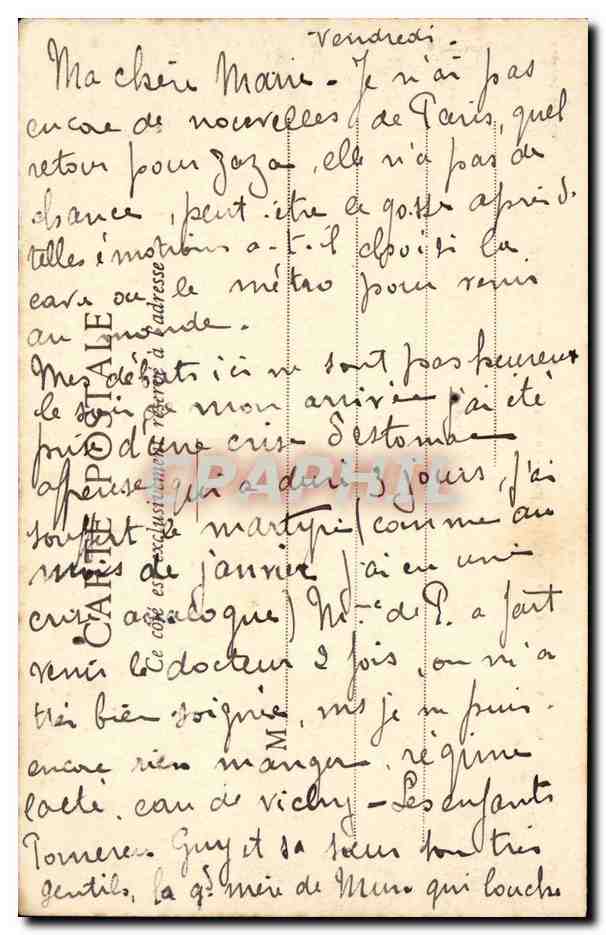 Vendredi -
Ma chère Marie - Je n'ai pas
encore de nouvelles de Paris, quel
retour pour Zaza, elle n'a pas de
chance, peut-être le gosse après d.
telles émotions a-t-il choisi la
cave ou le métro pour venir
au monde.
Mes débuts ici ne sont pas heureux
le soir de mon arrivée j'ai été
prise d'une crise d'estomac
affreuse qui a duré 3 jours, j'ai
souffert le martyre (comme au
mois de janvier j'ai eu une
crise analogue) Mme de P. a fait
venir le docteur 2 fois, on m'a
très bien soignée, ms je ne puis
encore rien manger, régime
lacté, eau de Vichy - Les enfants
Guy et sa sœur sont très
gentils, la gd mère de Mme qui louche
CARTE POSTALE
Ce côté est exclusivement réservé à l'adresse
M
CPAPHIL